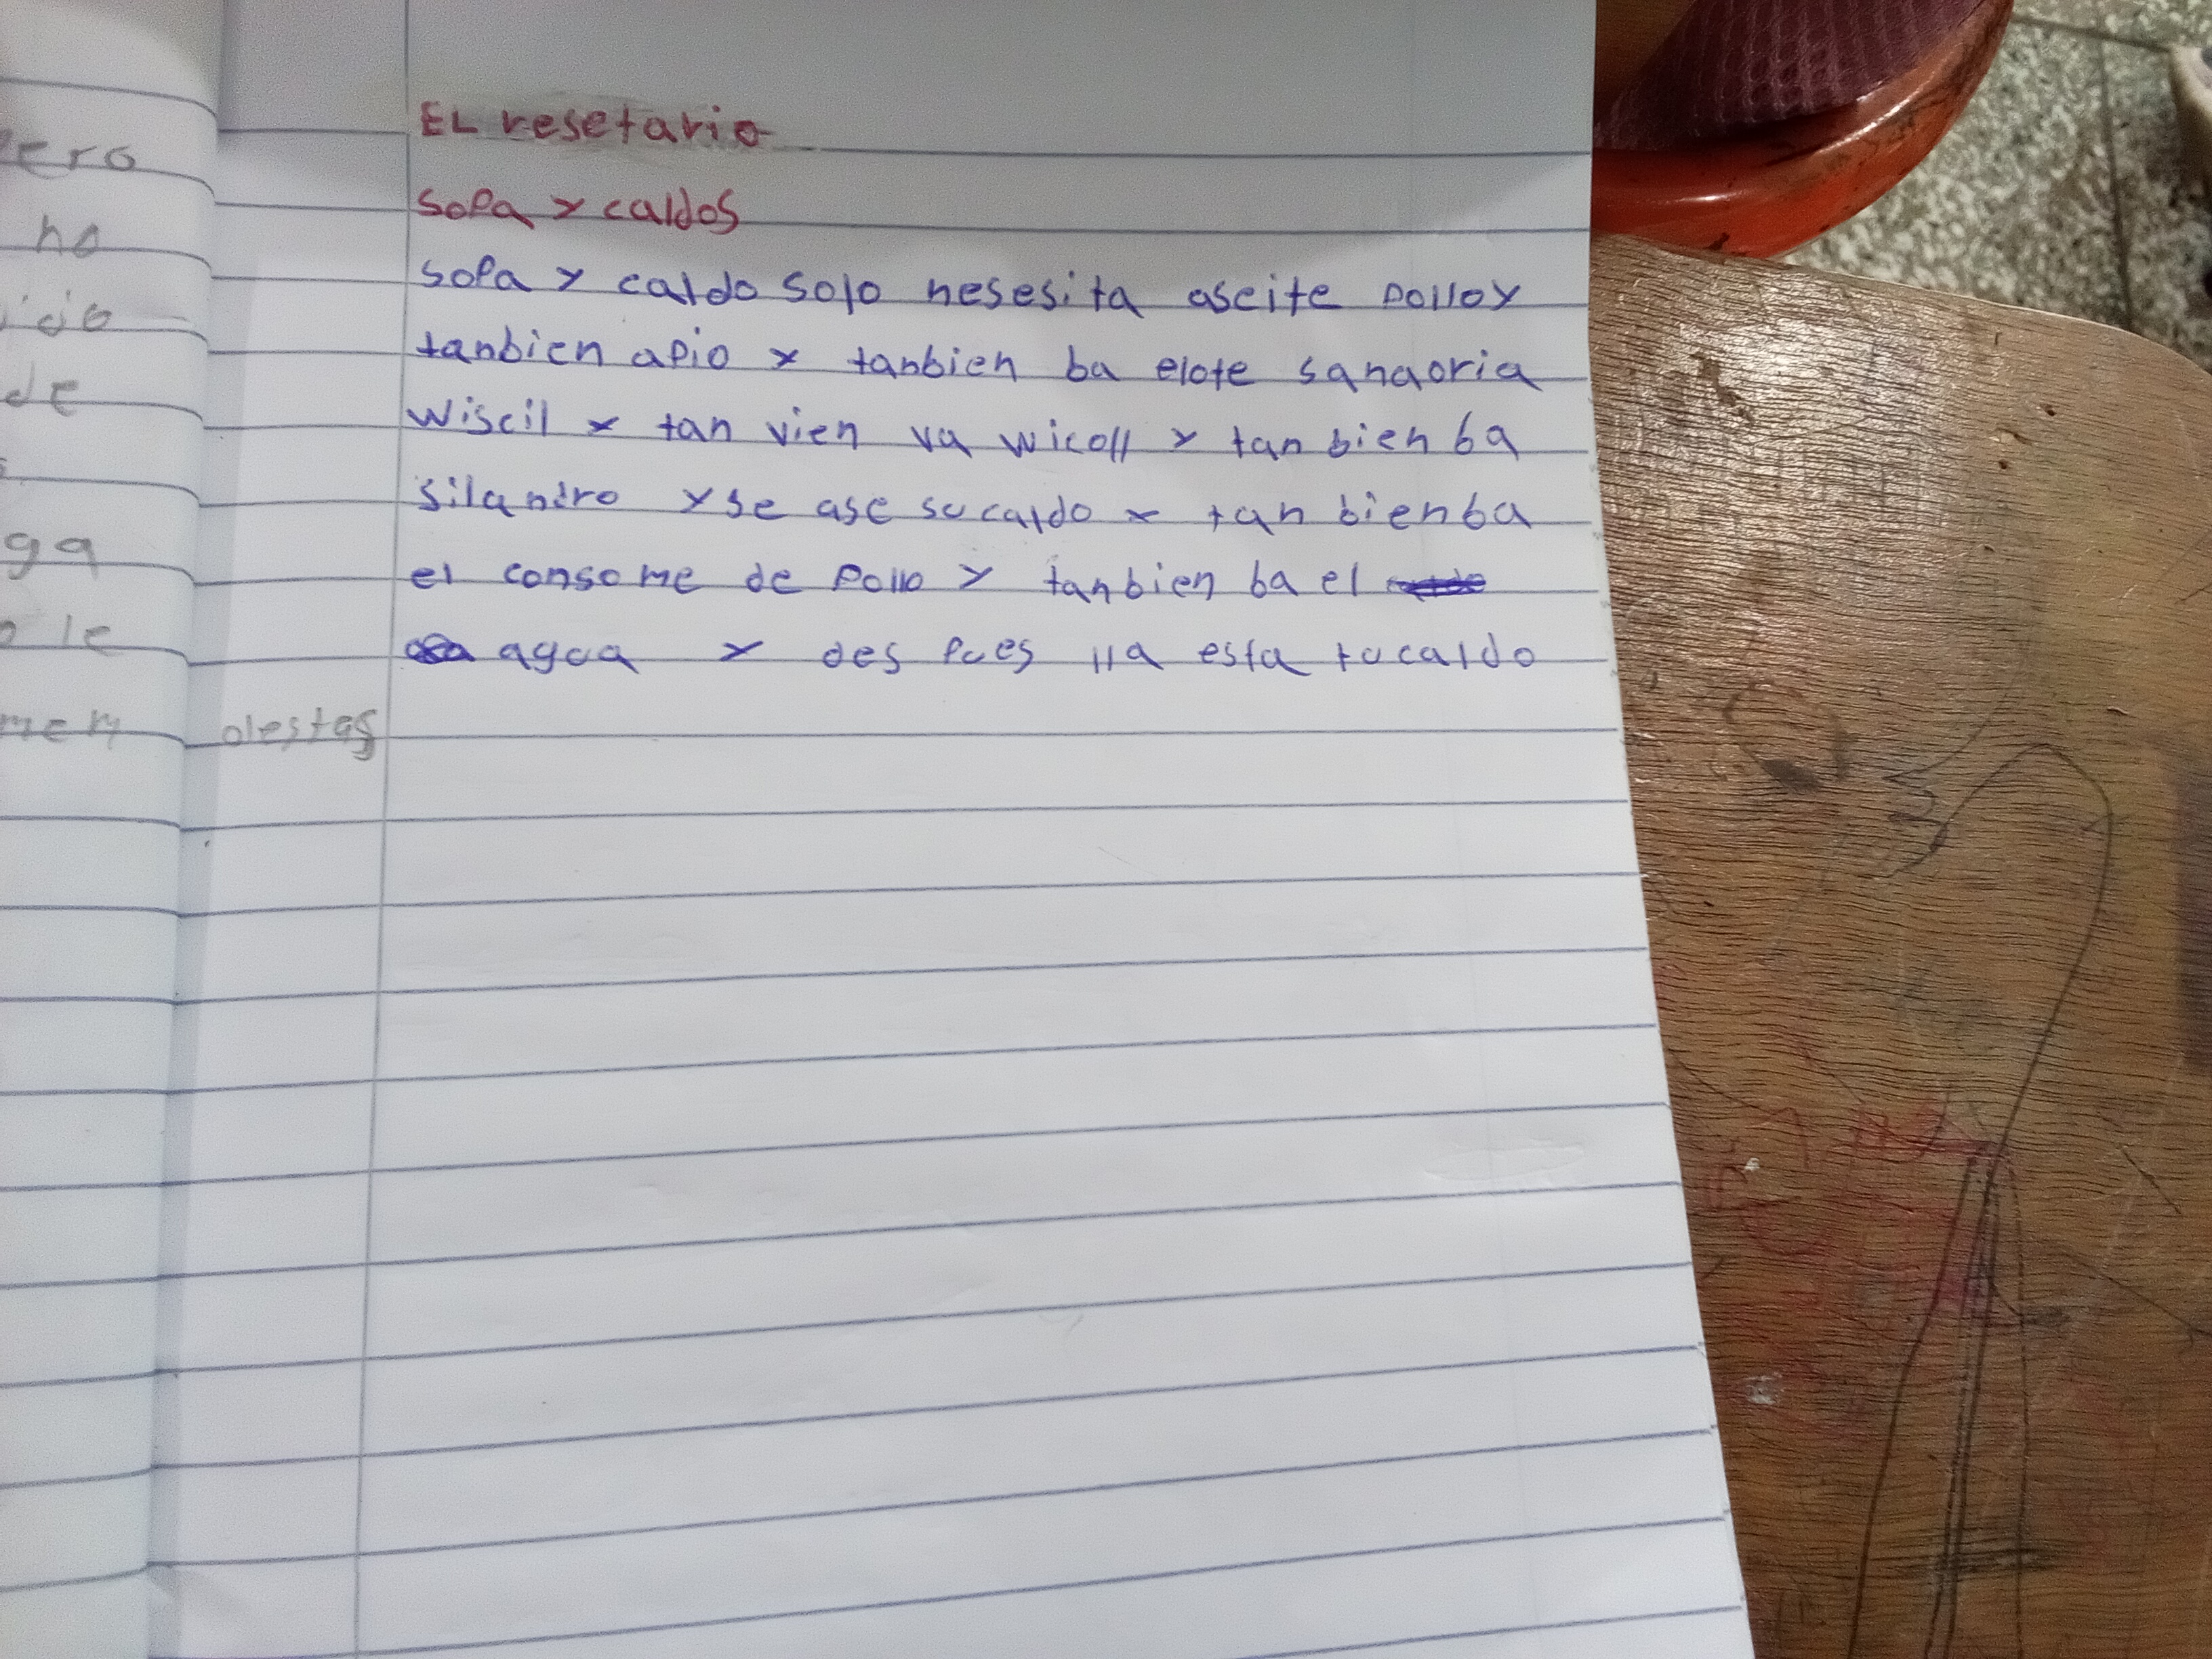 EL resetario
Sopa y caldos
sopa y caldo solo nesesita aseite pollo y
tanbien apio y tanbien ba elote sanaoria
wiscil y tan vien va wicoll y tan bien ba
silandro y se ase su caldo y tan bien ba
el consome de pollo y tanbien ba el
agua y des pues lla esta tu caldo
ero
no
de
ga
le
men olestas